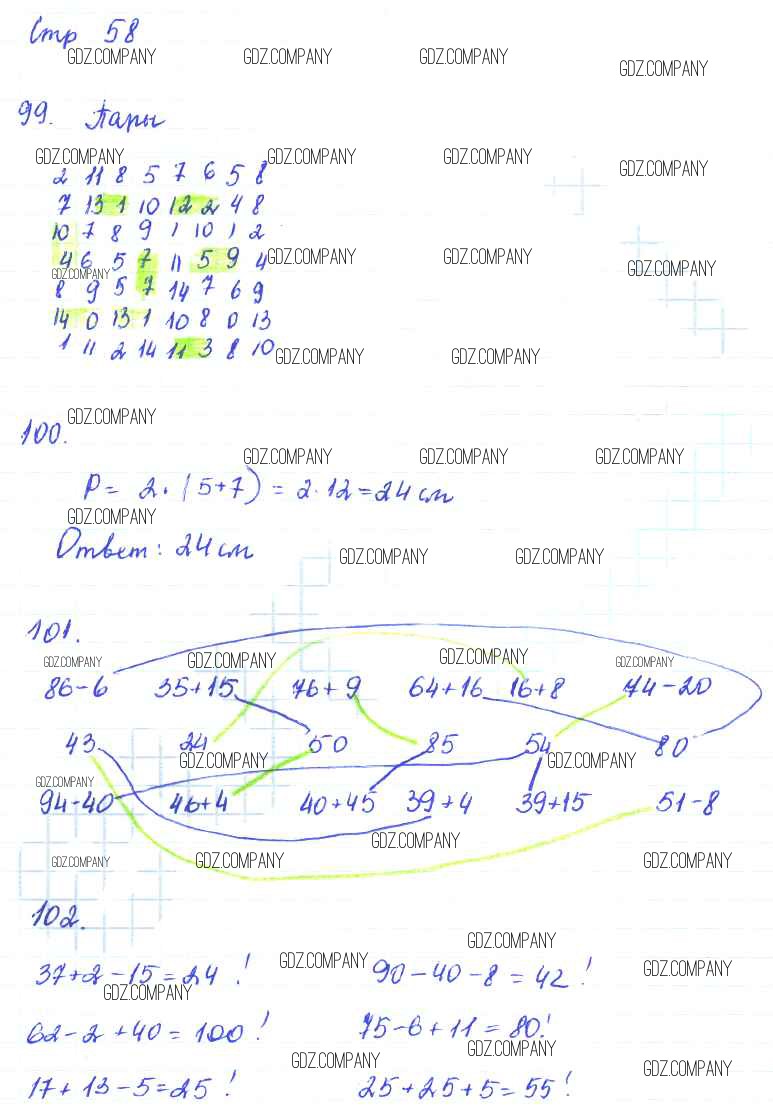 Стр 58
GDZ.COMPANY GDZ.COMPANY GDZ.COMPANY GDZ.COMPANY
99. Пары
GDZ.COMPANY GDZ.COMPANY GDZ.COMPANY GDZ.COMPANY
2 11 8 5 7 6 5 8
7 13 1 10 12 2 4 8
10 7 8 9 1 10 1 2
4 6 5 7 11 5 9 4 GDZ.COMPANY GDZ.COMPANY GDZ.COMPANY
GDZ.COMPANY
8 9 5 7 14 7 6 9
14 0 13 1 10 8 0 13
1 11 2 14 11 3 8 10 GDZ.COMPANY GDZ.COMPANY
GDZ.COMPANY
100.
GDZ.COMPANY GDZ.COMPANY GDZ.COMPANY
P = 2 · (5+7) = 2·12=24 см
GDZ.COMPANY
Ответ: 24 см GDZ.COMPANY GDZ.COMPANY
101.
GDZ.COMPANY GDZ.COMPANY GDZ.COMPANY GDZ.COMPANY
86-6 35+15 76+9 64+16 16+8 74-20
43 24 50 85 54 80
GDZ.COMPANY GDZ.COMPANY
GDZ.COMPANY
94-40 46+4 40+45 39+4 39+15 51-8
GDZ.COMPANY
GDZ.COMPANY GDZ.COMPANY GDZ.COMPANY
102.
GDZ.COMPANY
37+2-15=24! GDZ.COMPANY 90-40-8=42! GDZ.COMPANY
GDZ.COMPANY
62-2+40=100! 75-6+11=80!
GDZ.COMPANY
GDZ.COMPANY GDZ.COMPANY
17+13-5=25! 25+25+5=55!